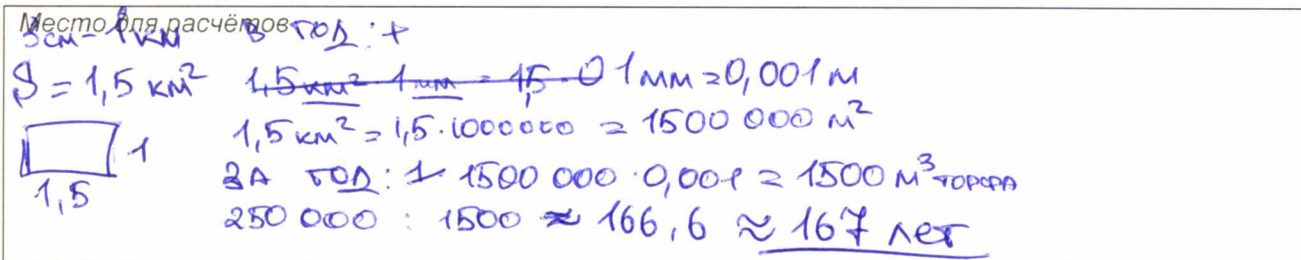 Место для расчётов
3см - 1 км В год: +
S = 1,5 км² 1,5 км² 1 мм = 15 · 0 1 мм = 0,001 м
1,5 км² = 1,5 · 1000000 = 1500 000 м²
1
1,5
ЗА год: 1 1500 000 · 0,001 = 1500 м³ торфа
250 000 : 1500 ≈ 166,6 ≈ 167 лет